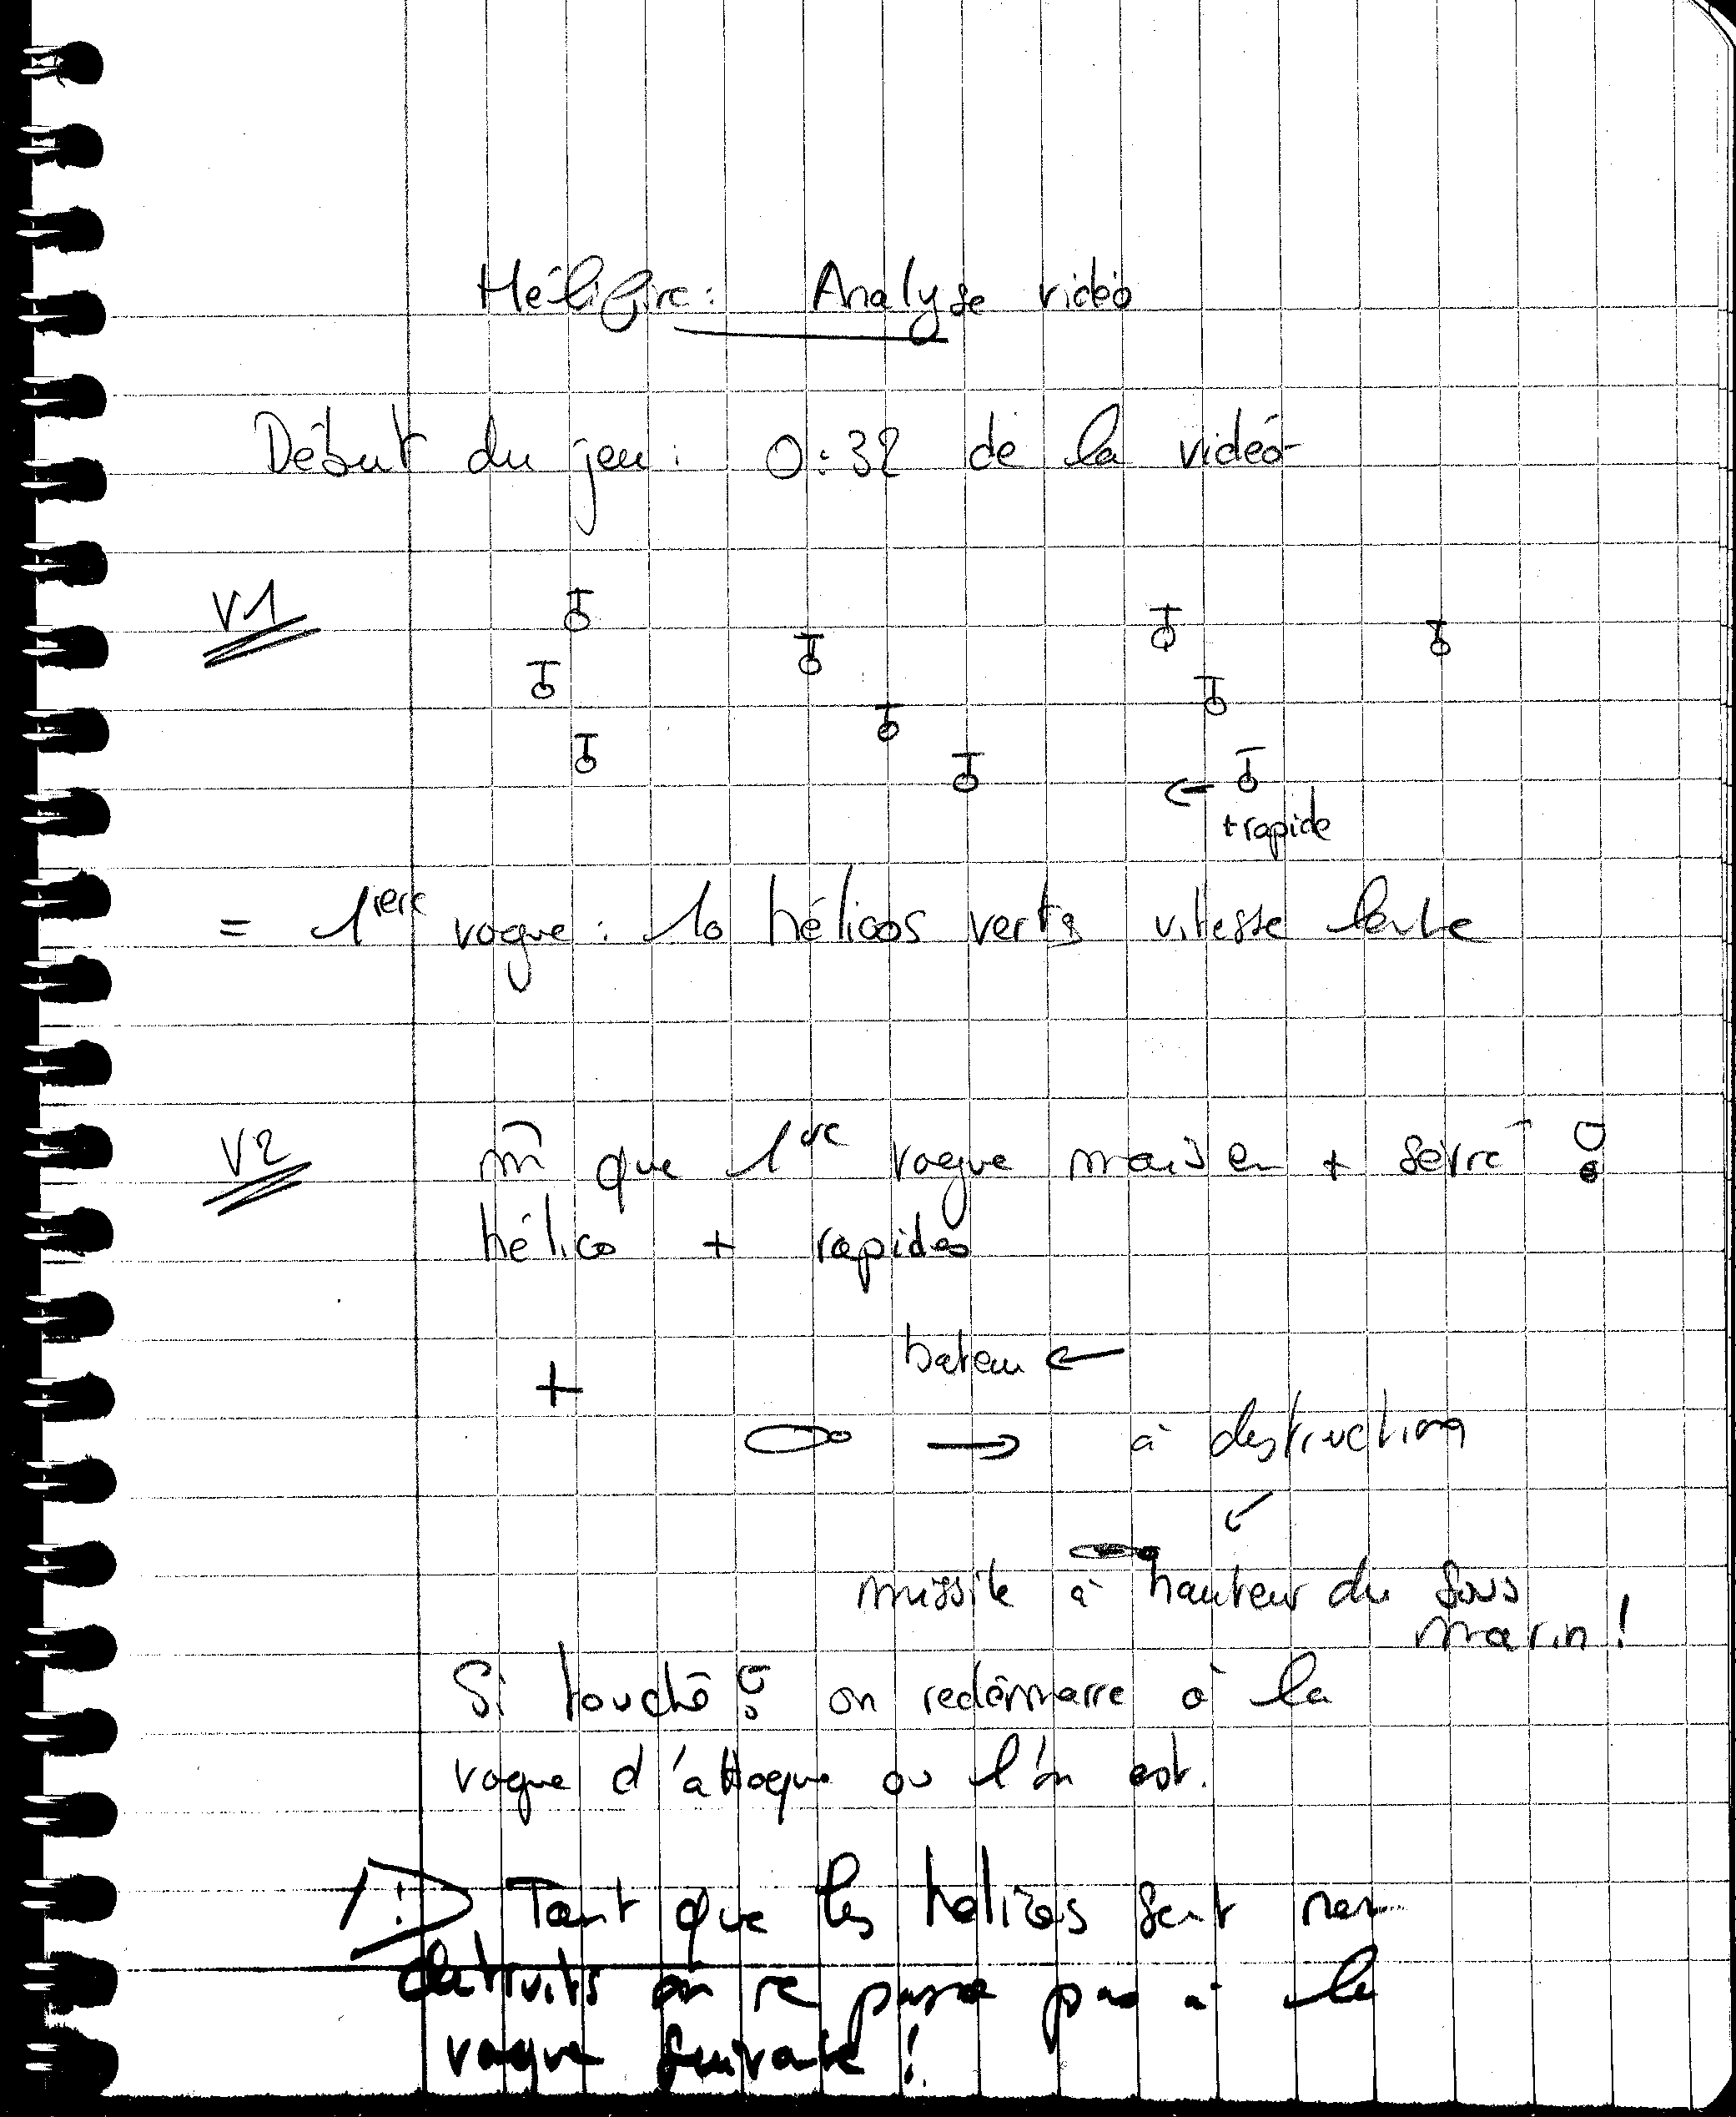 Héli Fire : Analyse vidéo
Début du jeu : 0:32 de la vidéo
V1
+ rapide
= 1iere vague : 10 hélicos verts vitesse lente
V2
m̂ que 1ere vague mais en + serré !
hélico + rapides
+
bateau ←
→ à destruction
missile à hauteur du sous
marin !
Si touché : on redémarre à la
vague d'attaque ou l'on est.
/!\ Tant que les hélicos sont non
détruits on ne passe pas à la
vague suivante !